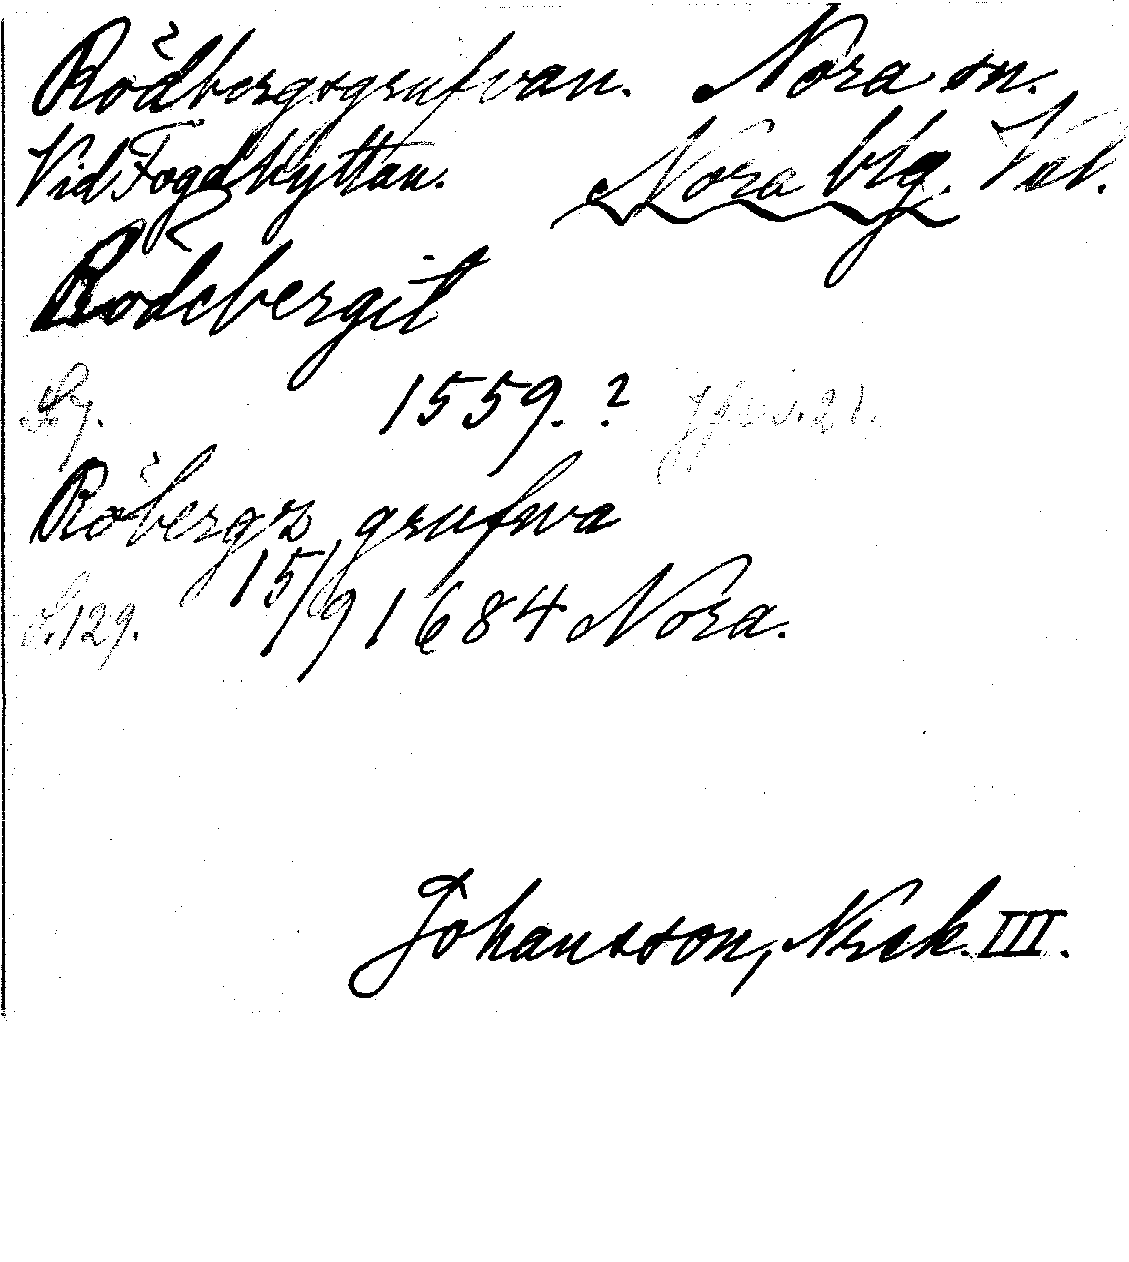 Rödbergsgrufvan. Nora sn.
Vid Fogdhyttan. Nora blg. Vstl.
Rödebergit
S. 7. 1559. ? Jfr s. 21.
Röbergz grufwa
S. 129. 15/9 1684 Nora.
Johansson, Nrck. III.